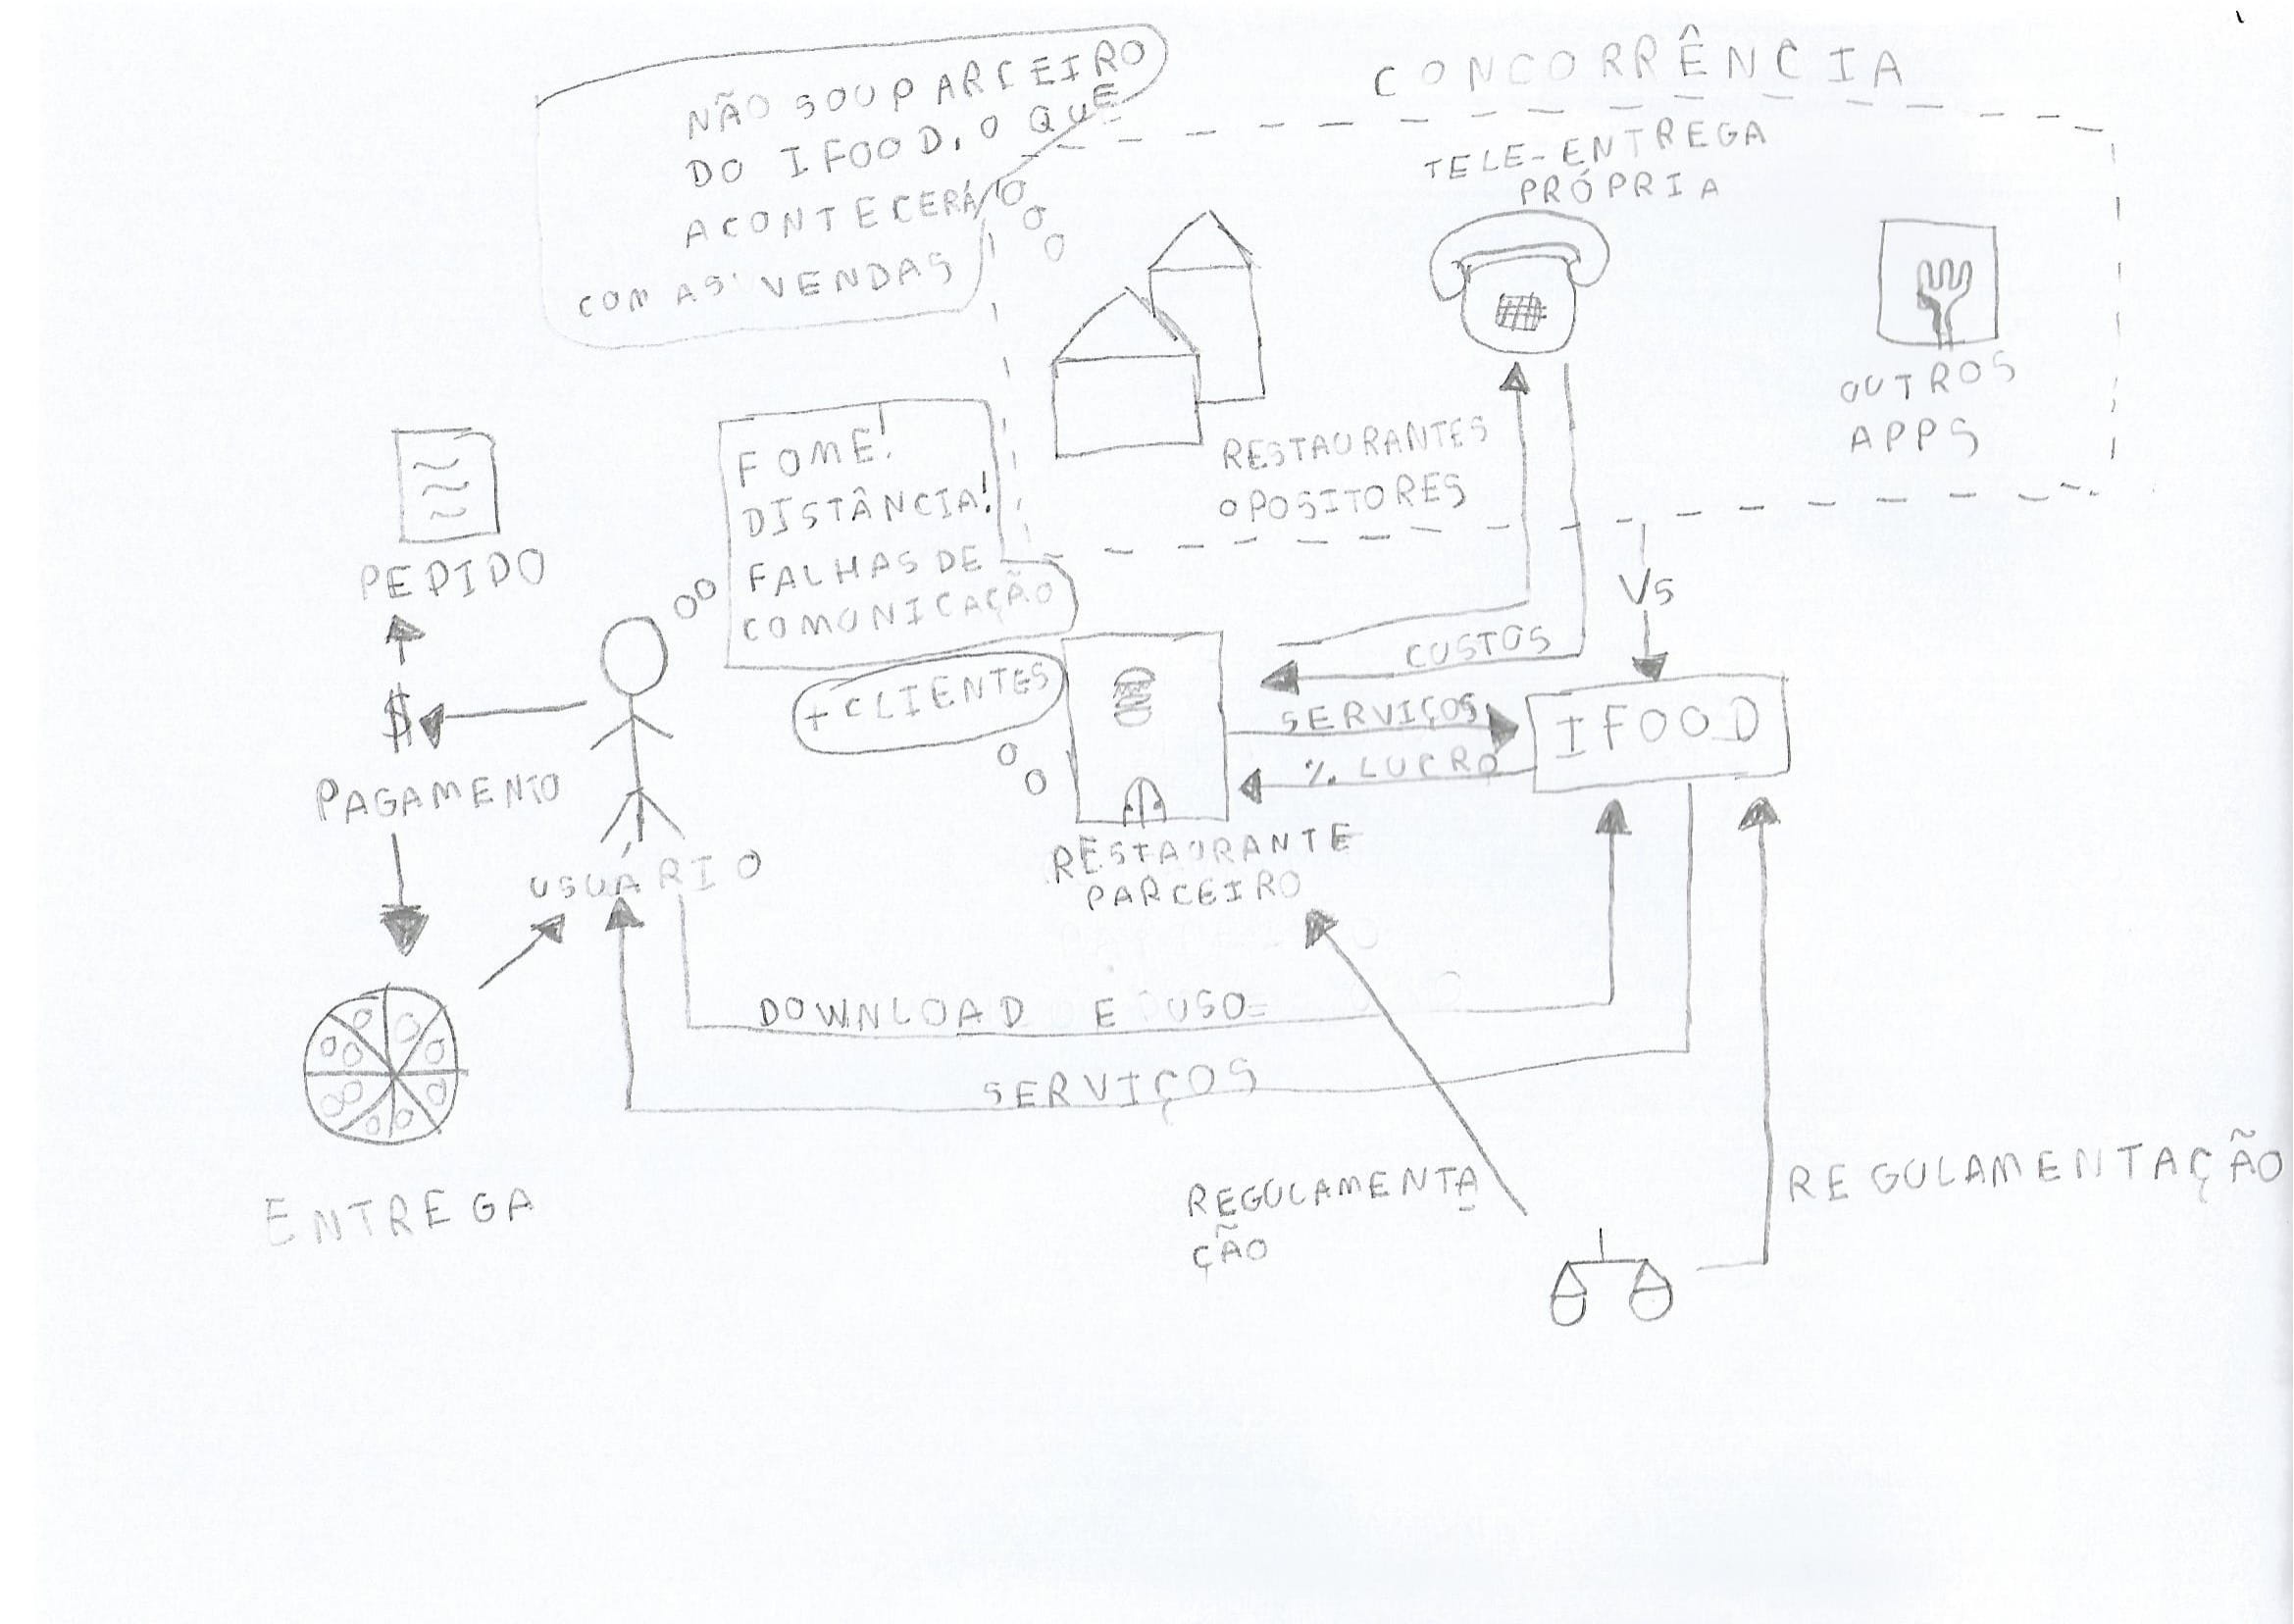 NÃO SOU PARCEIRO
DO IFOOD, O QUE
ACONTECERÁ
COM AS VENDAS
CONCORRÊNCIA
TELE-ENTREGA
PRÓPRIA
OUTROS
APPS
RESTAURANTES
OPOSITORES
FOME!
DISTÂNCIA!
FALHAS DE
COMUNICAÇÃO
PEDIDO
$
PAGAMENTO
USUÁRIO
ENTREGA
+ CLIENTES
RESTAURANTE
PARCEIRO
CUSTOS
SERVIÇOS
% LUCRO
VS
IFOOD
DOWNLOAD E USO
SERVIÇOS
REGULAMENTA
ÇÃO
REGULAMENTAÇÃO